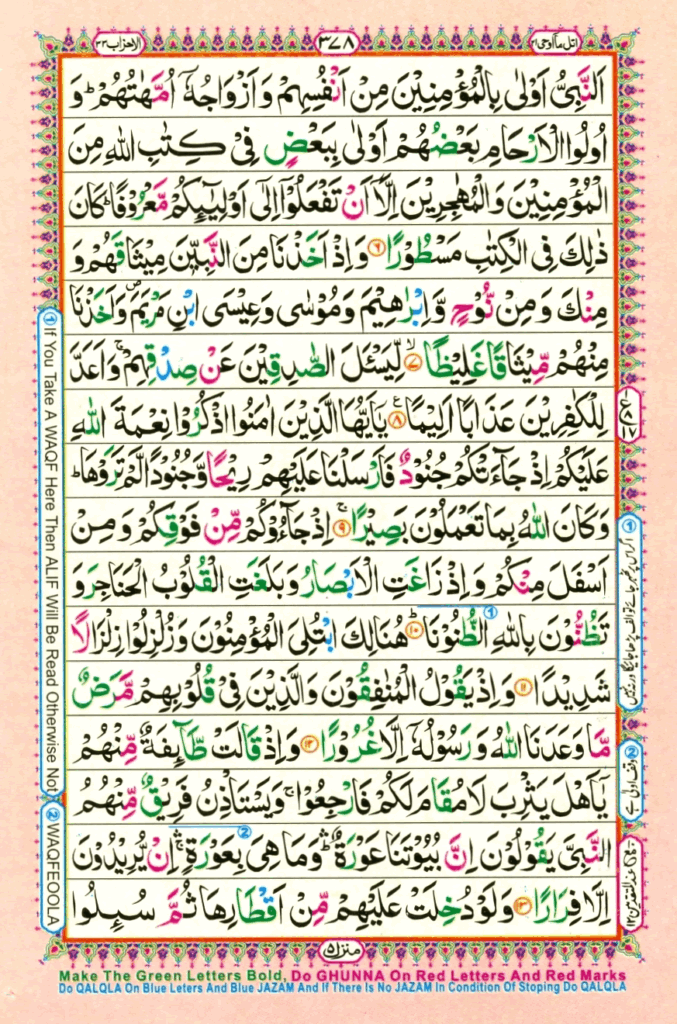 اتل ما اوحی ٢١
٣٧٨
الاحزاب ٣٣
اَلنَّبِیُّ اَوْلٰی بِالْمُؤْمِنِیْنَ مِنْ اَنْفُسِهِمْ وَ اَزْوَاجُهٗۤ اُمَّهٰتُهُمْ ؕ وَ
اُولُوا الْاَرْحَامِ بَعْضُهُمْ اَوْلٰی بِبَعْضٍ فِیْ كِتٰبِ اللّٰهِ مِنَ
الْمُؤْمِنِیْنَ وَ الْمُهٰجِرِیْنَ اِلَّاۤ اَنْ تَفْعَلُوْۤا اِلٰۤی اَوْلِیٰٓىِٕكُمْ مَّعْرُوْفًا ؕ كَانَ
ذٰلِكَ فِی الْكِتٰبِ مَسْطُوْرًا ۶ وَ اِذْ اَخَذْنَا مِنَ النَّبِیّٖنَ مِیْثَاقَهُمْ وَ
مِنْكَ وَ مِنْ نُّوْحٍ وَّ اِبْرٰهِیْمَ وَ مُوْسٰی وَ عِیْسَی ابْنِ مَرْیَمَ ۪ وَ اَخَذْنَا
مِنْهُمْ مِّیْثَاقًا غَلِیْظًا ۙ۷ لِّیَسْـَٔلَ الصّٰدِقِیْنَ عَنْ صِدْقِهِمْ ۚ وَ اَعَدَّ
لِلْكٰفِرِیْنَ عَذَابًا اَلِیْمًا ۠۸ یٰۤاَیُّهَا الَّذِیْنَ اٰمَنُوا اذْكُرُوْا نِعْمَةَ اللّٰهِ
عَلَیْكُمْ اِذْ جَآءَتْكُمْ جُنُوْدٌ فَاَرْسَلْنَا عَلَیْهِمْ رِیْحًا وَّ جُنُوْدًا لَّمْ تَرَوْهَا ؕ
وَ كَانَ اللّٰهُ بِمَا تَعْمَلُوْنَ بَصِیْرًا ۚ۹ اِذْ جَآءُوْكُمْ مِّنْ فَوْقِكُمْ وَ مِنْ
اَسْفَلَ مِنْكُمْ وَ اِذْ زَاغَتِ الْاَبْصَارُ وَ بَلَغَتِ الْقُلُوْبُ الْحَنَاجِرَ وَ
تَظُنُّوْنَ بِاللّٰهِ الظُّنُوْنَا ؕ۱۰ هُنَالِكَ ابْتُلِیَ الْمُؤْمِنُوْنَ وَ زُلْزِلُوْا زِلْزَالًا
شَدِیْدًا ۱۱ وَ اِذْ یَقُوْلُ الْمُنٰفِقُوْنَ وَ الَّذِیْنَ فِیْ قُلُوْبِهِمْ مَّرَضٌ
مَّا وَعَدَنَا اللّٰهُ وَ رَسُوْلُهٗۤ اِلَّا غُرُوْرًا ۱۲ وَ اِذْ قَالَتْ طَّآىِٕفَةٌ مِّنْهُمْ
یٰۤاَهْلَ یَثْرِبَ لَا مُقَامَ لَكُمْ فَارْجِعُوْا ۚ وَ یَسْتَاْذِنُ فَرِیْقٌ مِّنْهُمُ
النَّبِیَّ یَقُوْلُوْنَ اِنَّ بُیُوْتَنَا عَوْرَةٌ ۛؕ وَ مَا هِیَ بِعَوْرَةٍ ۛۚ اِنْ یُّرِیْدُوْنَ
اِلَّا فِرَارًا ۱۳ وَ لَوْ دُخِلَتْ عَلَیْهِمْ مِّنْ اَقْطَارِهَا ثُمَّ سُىِٕلُوا
منزل ۵
① If You Take A WAQF Here Then ALIF Will Be Read Otherwise Not
② WAQFEOOLA
② وقف اولی ہے
Make The Green Letters Bold, Do GHUNNA On Red Letters And Red Marks
Do QALQLA On Blue Leters And Blue JAZAM And If There Is No JAZAM In Condition Of Stoping Do QALQLA